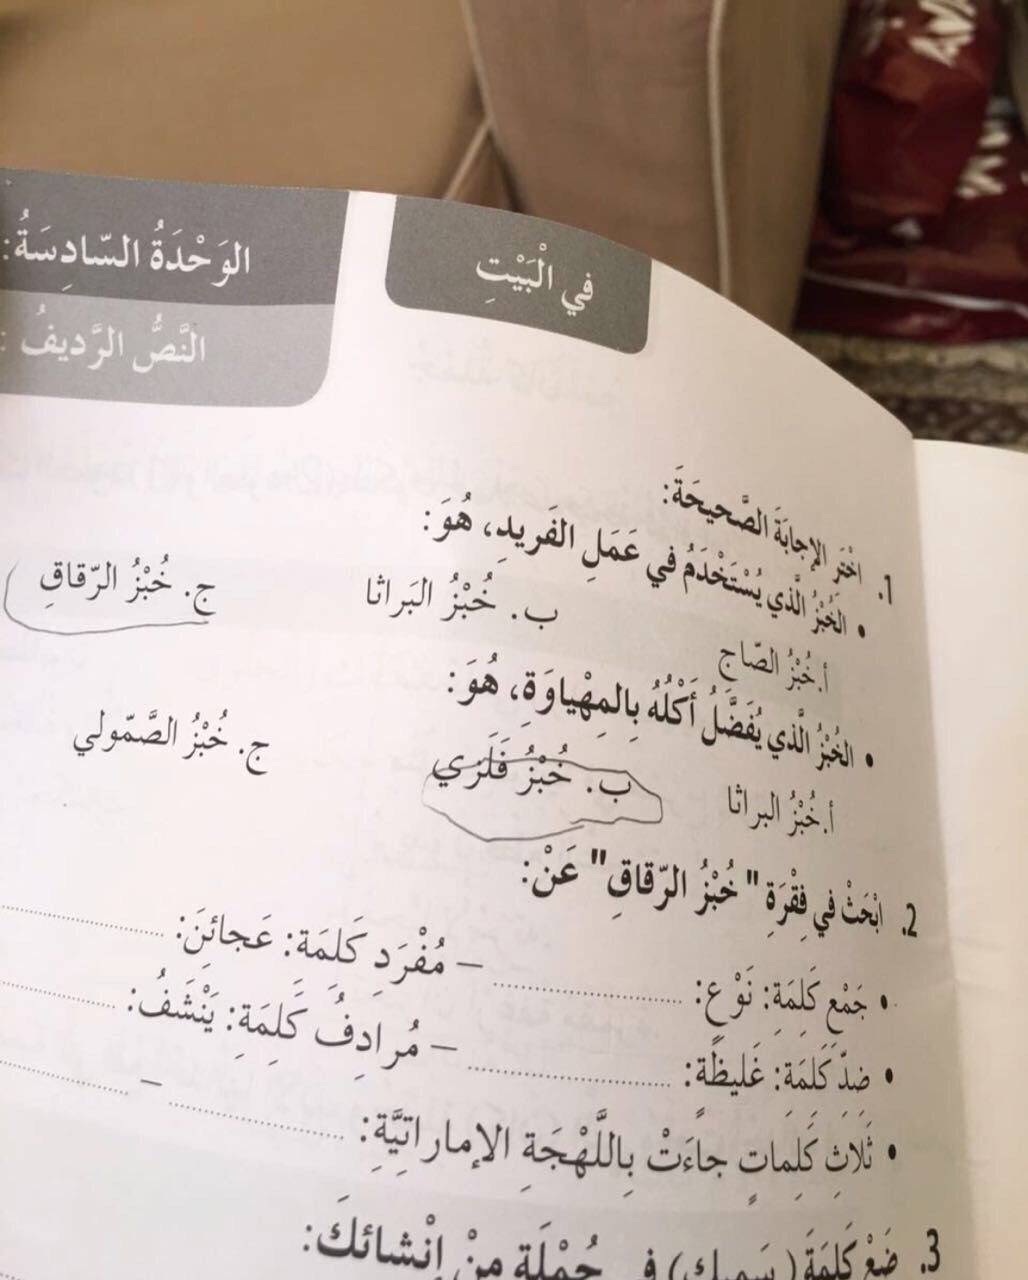 في الْبَيْتِ
الوَحْدَةُ السّادِسَةُ:
النَّصُّ الرَّديفُ:
1. اخْتَرِ الإِجابَةَ الصَّحيحَةَ:
• الخُبْزُ الَّذي يُسْتَخْدَمُ في عَمَلِ الفَريدِ، هُوَ:
أ. خُبْزُ الصّاج ب. خُبْزُ البَراثا ج. خُبْزُ الرّقاقِ
• الخُبْزُ الَّذي يُفَضَّلُ أَكْلُهُ بِالمِهْياوَةِ، هُوَ:
أ. خُبْزُ البراثا ب. خُبْزُ فَلَزي ج. خُبْزُ الصَّمّولي
2. ابْحَثْ في فِقْرَةِ " خُبْزُ الرّقاقِ" عَنْ:
• جَمْعِ كَلِمَةِ: نَوْعٍ: ........ – مُفْرَدِ كَلِمَة: عَجائنَ: ........
• ضِدِّ كَلِمَةِ: غَليظَةٍ: ........ – مُرادِفُ كَلِمَةِ: يَنْشَفُ: ........
• ثَلاثِ كَلِماتٍ جاءَتْ بِاللَّهْجَةِ الإماراتِيَّةِ: ........ – ........
3. ضَعْ كَلِمَةَ ( سَميك) في جُمْلَةٍ مِنْ إِنْشائكَ: